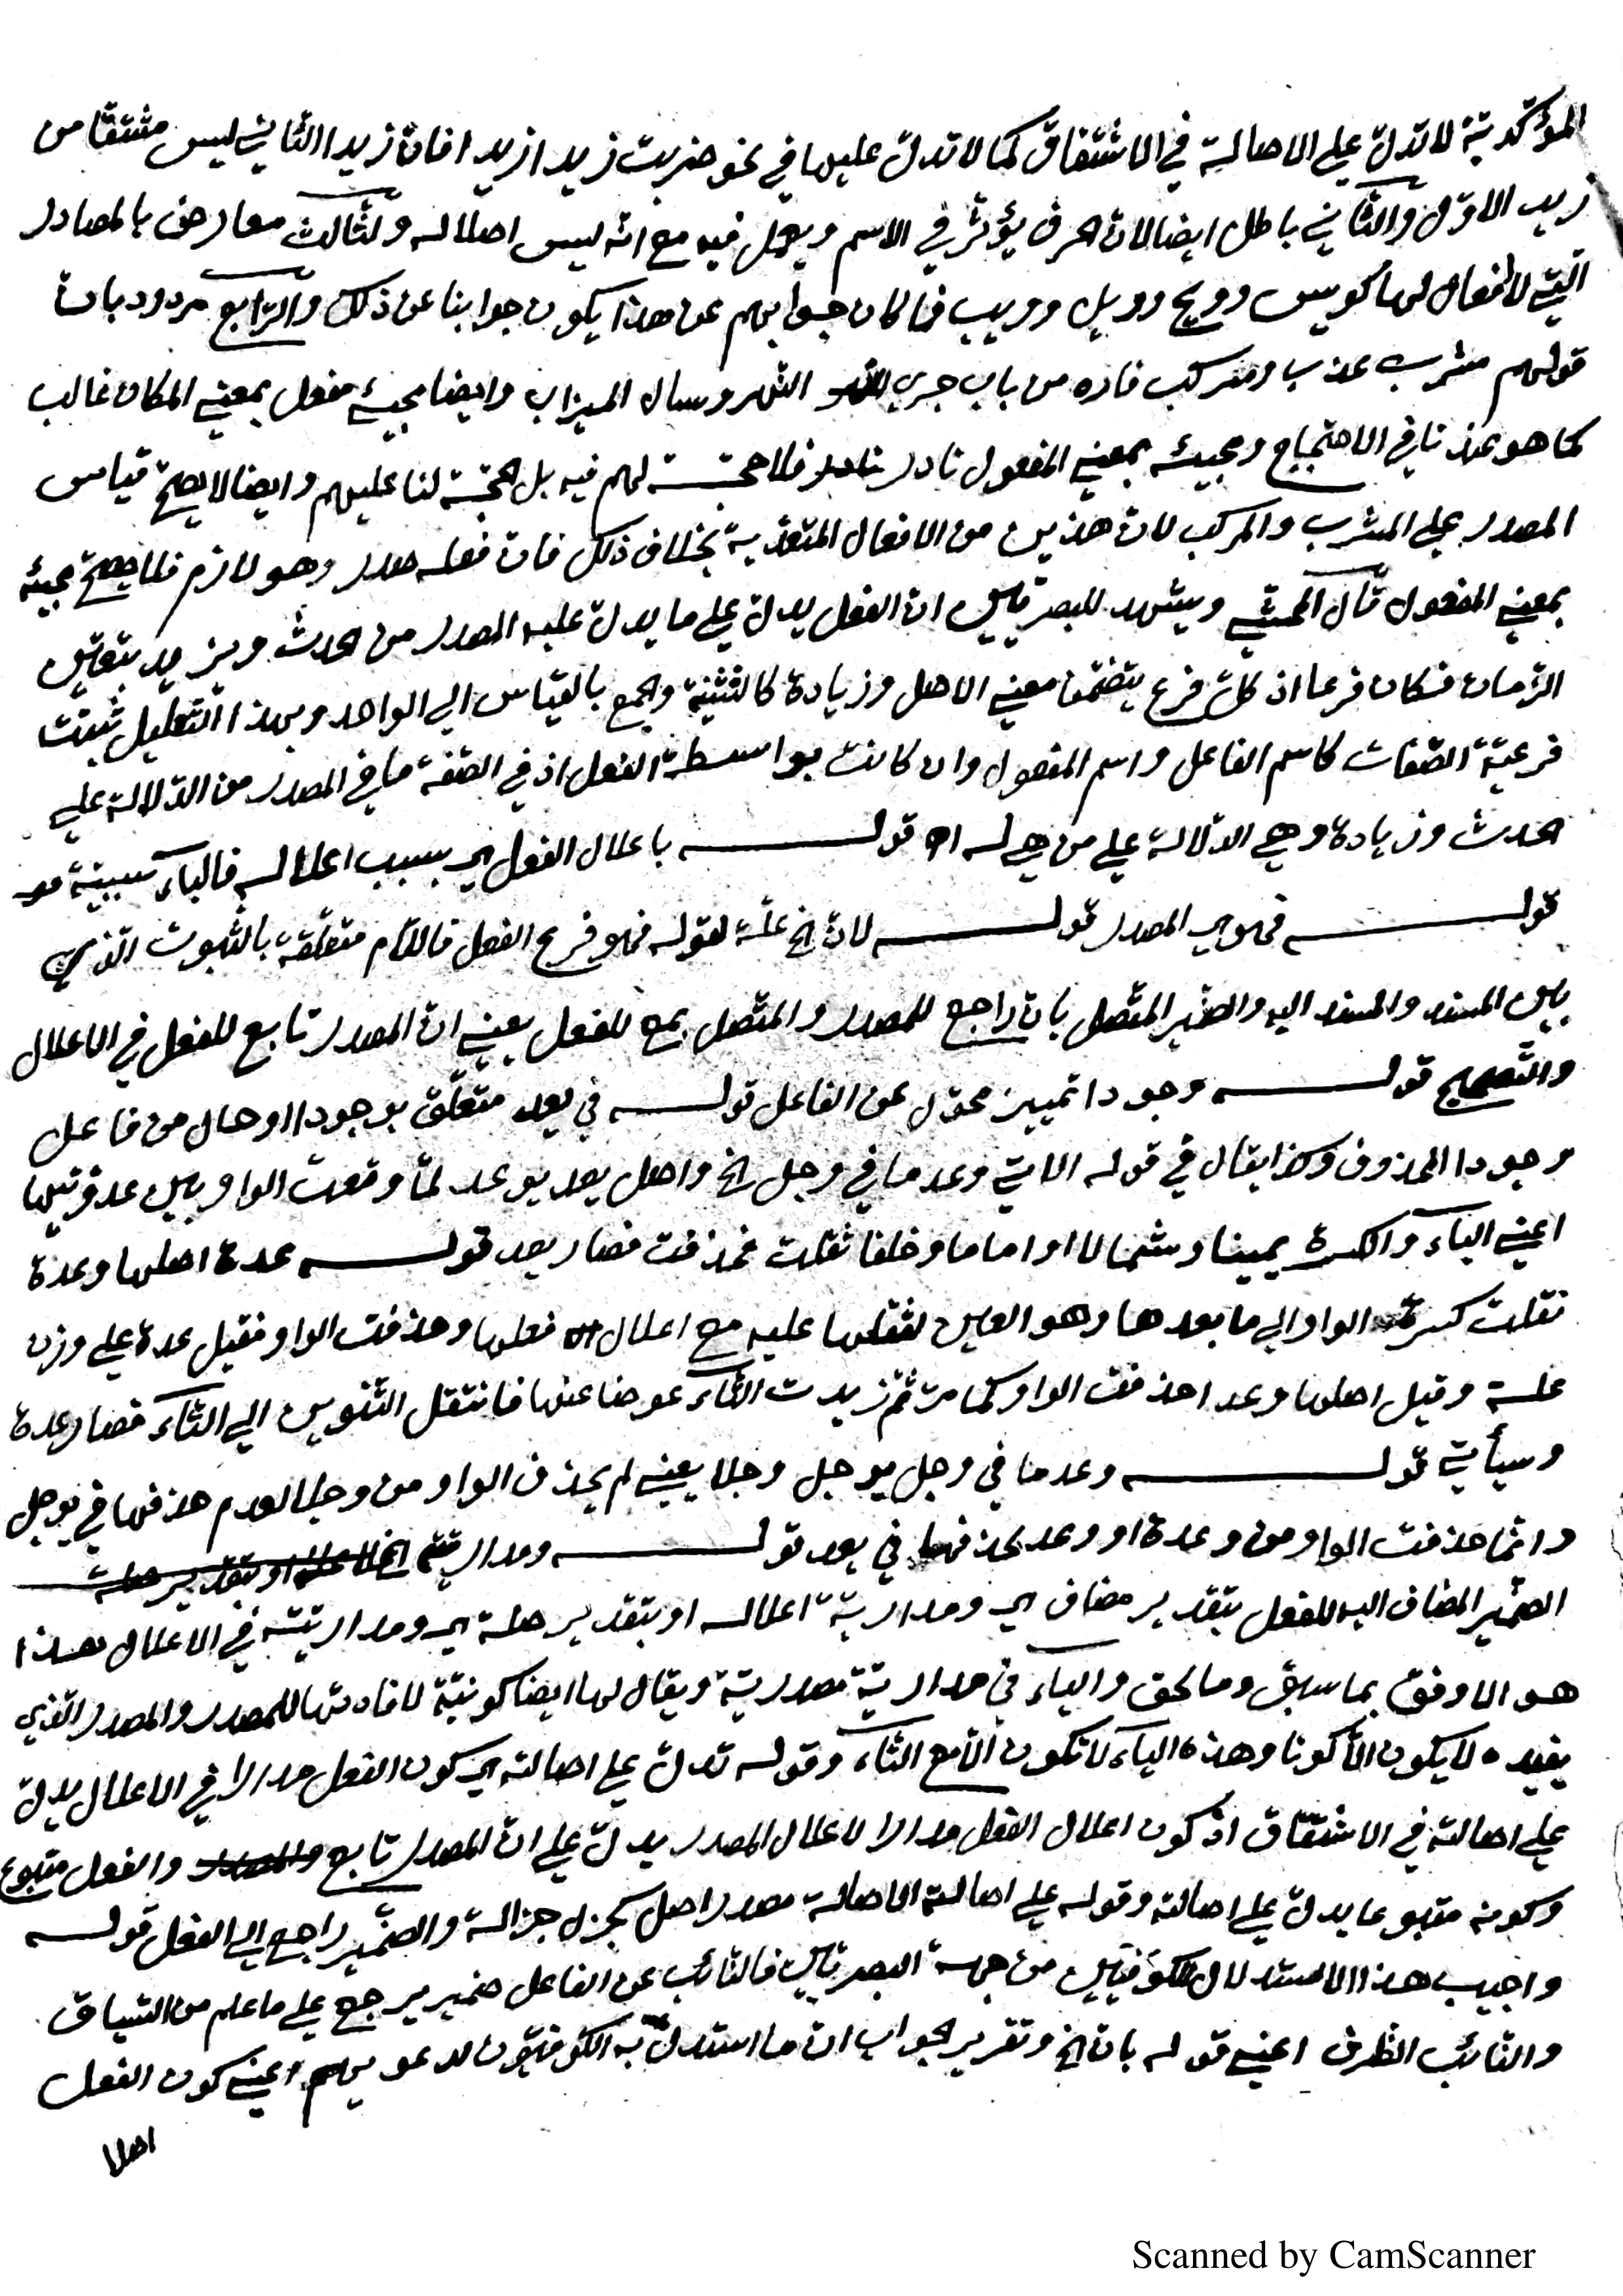 المؤكّديّة لا تدلّ علي الاصالة في الاشتقاق كما لا تدلّ عليها في نحو ضربت زيدا زيدا فانّ زيدا الثّاني ليس مشتقّا من
زيد الاوّل والثّاني باطل ايضا لانّ الحرف يؤثّر في الاسم ويعمل فيه مع انّه ليس اصلا له والثّالث معارض بالمصادر
الّتي لا افعال لها كويس وويح وويل وويب فما كان جوابهم عن هذا يكون جوابنا عن ذلك والرّابع مردود بانّ
قولهم مشرب عذب ومركب فاره من باب جري النّهر وسال الميزاب وايضا مجيئ مفعل بمعني المكان غالب
كما هو عندنا في الاحتجاج ومجيئه بمعني المفعول نادر فلا حجّة لهم فيه بل الحجّة لنا عليهم وايضا لا يصحّ قياس
المصدر علي المشرب والمركب لانّ هذين من الافعال المتعدّية بخلاف ذلك فانّ فعله صدر وهو لازم فلا يصحّ مجيئه
بمعني المفعول قال المحشّي ويشهد للبصريّين انّ الفعل يدلّ علي ما يدلّ عليه المصدر من الحدث ويزيد بتعيّن
الزّمان فكان فرعا اذ كلّ فرع يتضمّن معني الاصل وزيادة كالتّثنية والجمع بالقياس الي الواحد وبهذا التّعليل ثبتت
فرعيّة الصّفات كاسم الفاعل واسم المفعول وان كانت بواسطة الفعل اذ في الصّفة ما في المصدر من الدّلالة علي
الحدث وزيادة وهي الدّلالة علي من هي له اه قوله باعلال الفعل اي بسبب اعلاله فالباء سببيّة
قوله فهو اي المصدر قوله لانّ الخ علّة لقوله فهو فرع الفعل فاللّام متعلّقة بالثّبوت الّذي
بين المسند والمسند اليه والضّمير المتّصل بانّ راجع للمصدر والمتّصل بمع للفعل يعني انّ المصدر تابع للفعل في الاعلال
والتّصحيح قوله وجودا تمييز محوّل عن الفاعل قوله في يعد متعلّق بوجودا او حال من فاعل
وجودا المحذوف وكذا يقال في قوله الاتي وعدما في وجل الخ واصل يعد يوعد لمّا وقعت الواو بين عدوّتيها
اعني الياء والكسرة يمينا وشمالا او اماما وخلفا ثقلت فحذفت فصار يعد قوله عدة اصلها وعدة
نقلت كسرة الواو الي ما بعدها وهو العين لثقلها عليه مع اعلال فعلها وحذفت الواو فقيل عدة علي وزن
علة وقيل اصلها وعد احذفت الواو كما مرّ ثمّ زيدت التّاء عوضا عنها فانتقل التّنوين الي التّاء فصار عدة
وسيأتي قوله وعدما في وجل يوجل وجلا يعني لم يحذف الواو من وجلا لعدم حذفها في يوجل
وانّما حذفت الواو من وعدة او وعد لحذفها في يعد قوله ومداريّته
الضّمير المضاف اليه للفعل بتقدير مضاف اي ومداريّة اعلاله او بتقدير صلة اي ومداريّته في الاعلال هذا
هو الاوفق بما سبق وما لحق والياء في مداريّة مصدريّة ويقال لها ايضا كونيّة لافادتها للمصدر والمصدر الّذي
يفيده لا يكون الّا كونا وهذه الياء لا تكون الّا مع التّاء وقوله تدلّ علي اصالته اي كون الفعل مدارا في الاعلال يدلّ
علي اصالته في الاشتقاق اذ كون اعلال الفعل مدارا لاعلال المصدر يدلّ علي انّ المصدر تابع والفعل متبوع
وكونه متبوعا يدلّ علي اصالته وقوله علي اصالته الاصالة مصدر اصل كجزل جزالة والضّمير راجع الي الفعل قوله
واجيب هذا الاستدلال للكوفيّين من جهة البصريّين فالنّائب عن الفاعل ضمير يرجع علي ما علم من السّياق
والنّائب الظّرف اعني قوله بانّ الخ وتقرير الجواب انّ ما استدلّ به الكوفيّون لدعويهم اعني كون الفعل
اصلا
Scanned by CamScanner